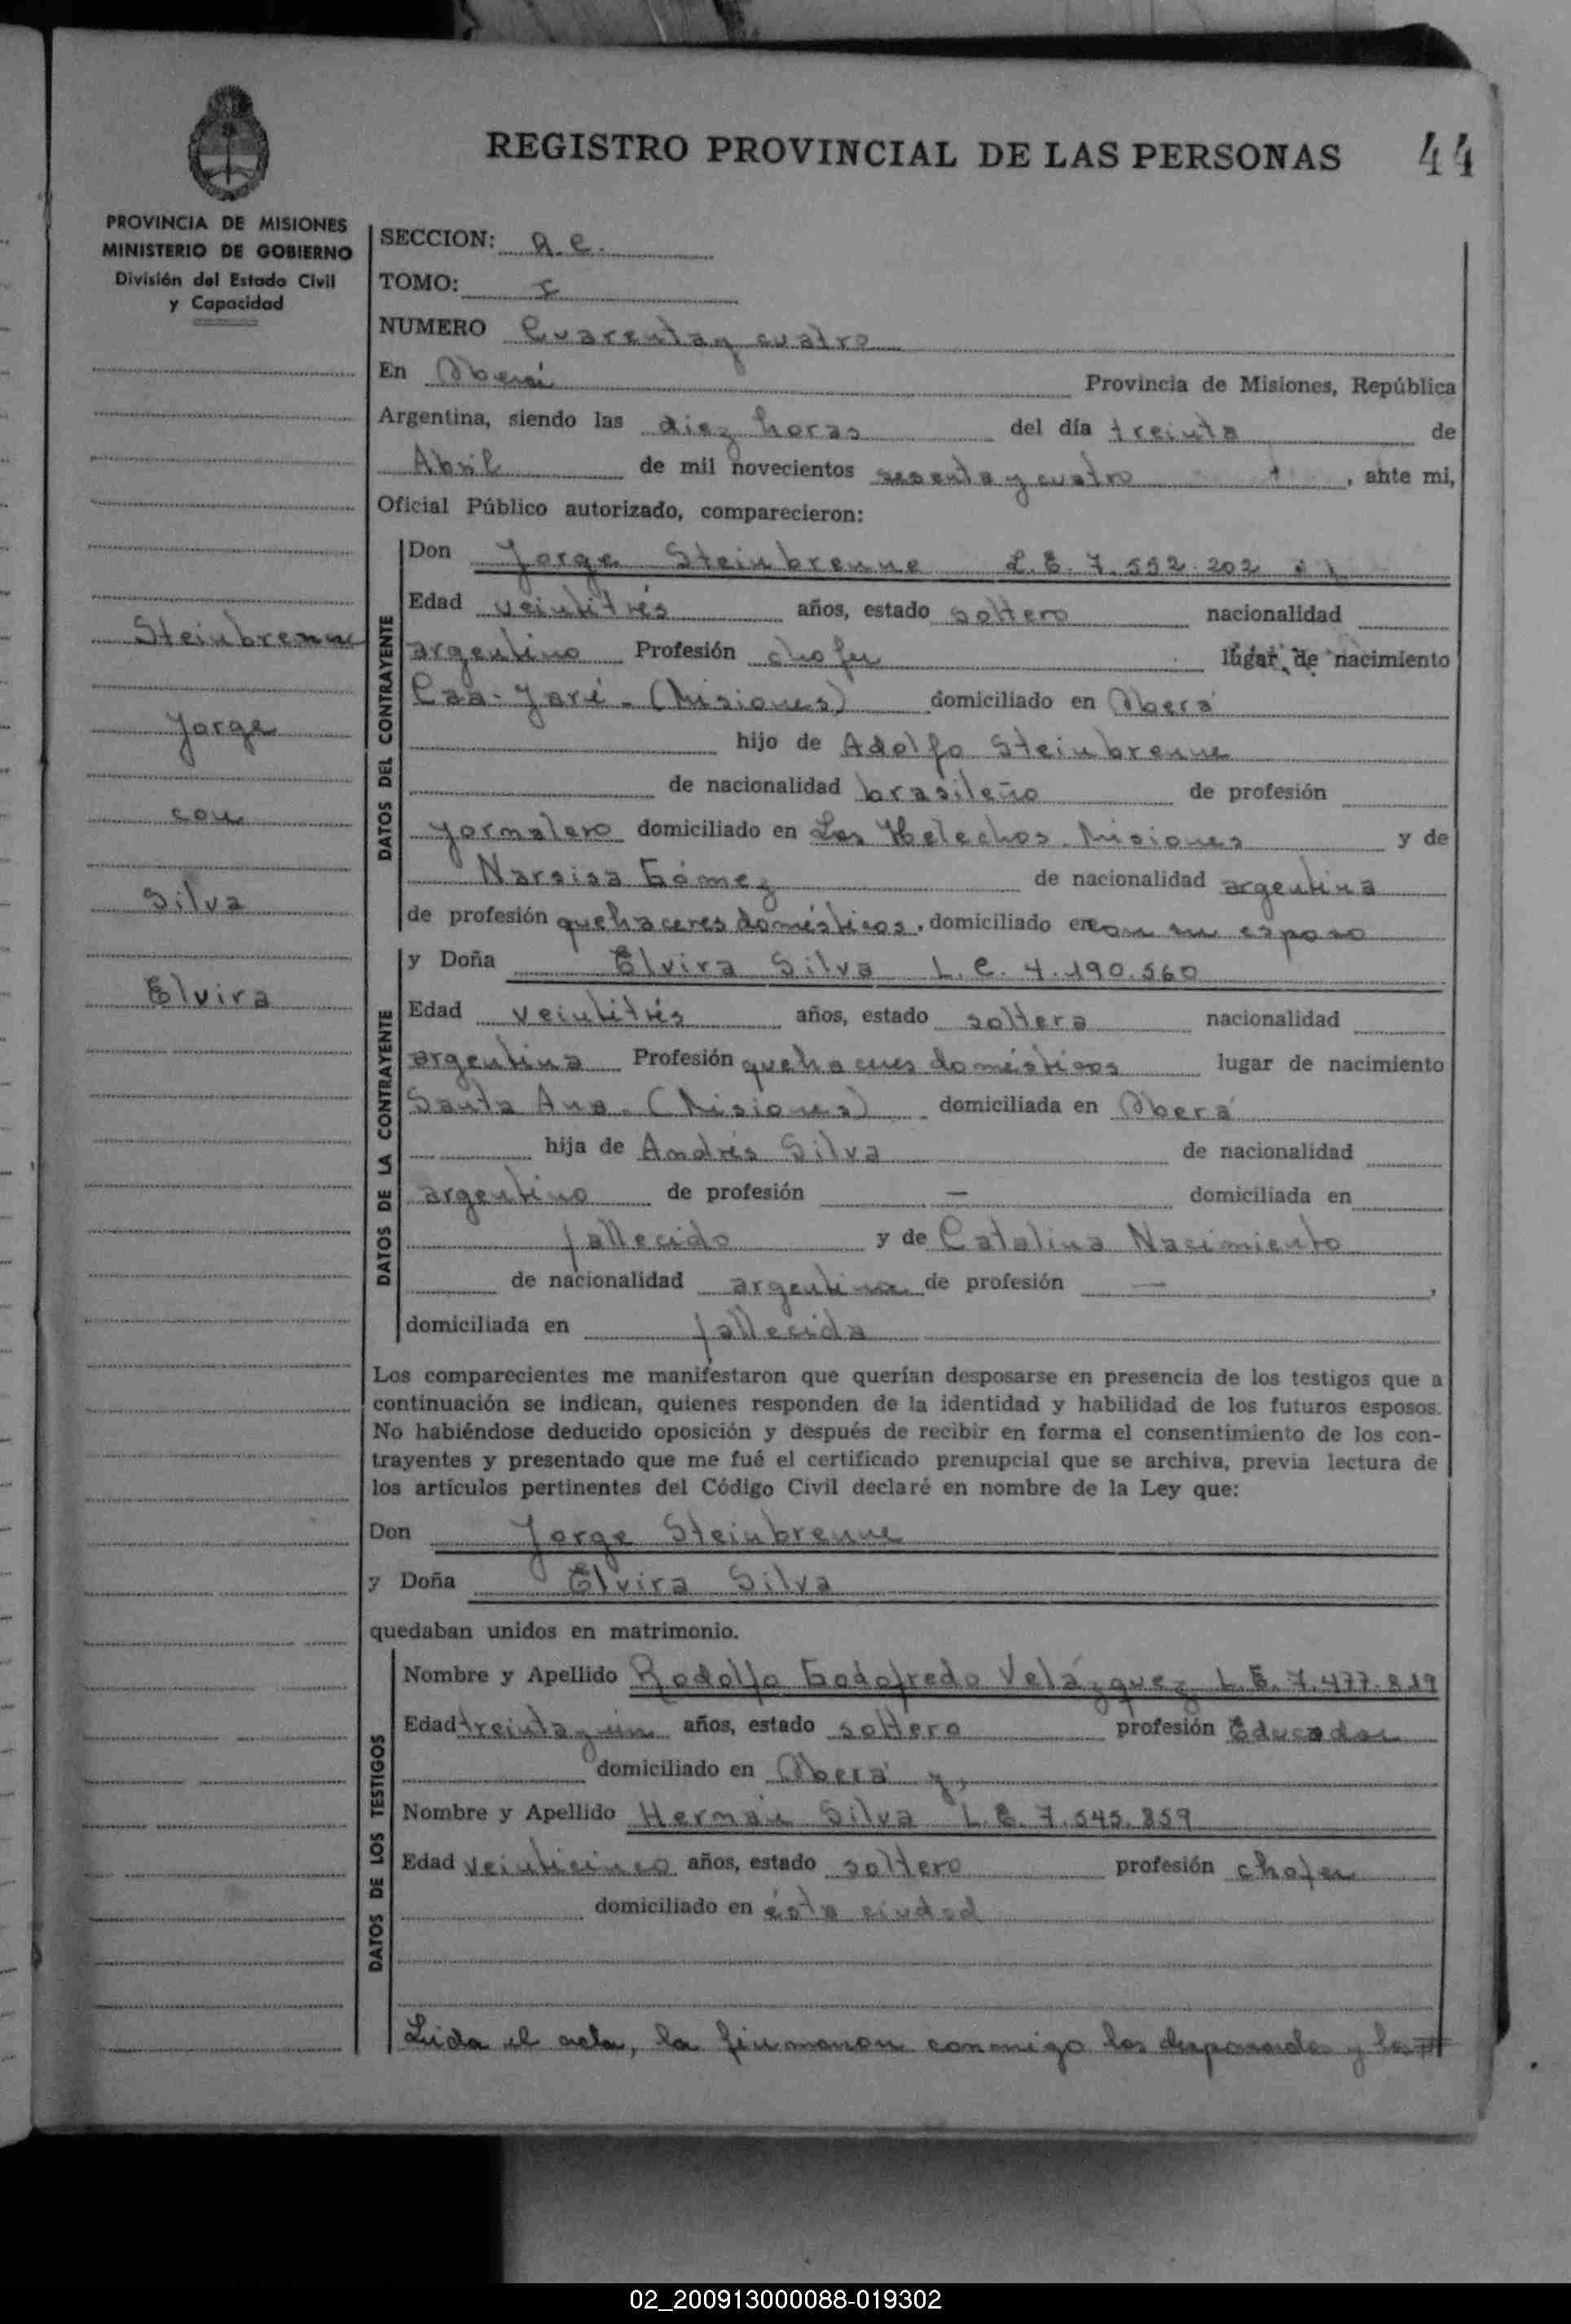 REGISTRO PROVINCIAL DE LAS PERSONAS 44
PROVINCIA DE MISIONES
MINISTERIO DE GOBIERNO
División del Estado Civil
y Capacidad
Steinbrenne
Jorge
con
Silva
Elvira
SECCION: a.c.
TOMO: I
NUMERO Cuarenta y cuatro
En Oberá Provincia de Misiones, República
Argentina, siendo las diez horas del día treinta de
Abril de mil novecientos sesenta y cuatro, ante mi,
Oficial Público autorizado, comparecieron:
DATOS DEL CONTRAYENTE
Don Jorge Steinbrenne L.E. 7.552.202
Edad veintitrés años, estado soltero nacionalidad
argentino Profesión chofer lugar de nacimiento
Caa-Yarí - (Misiones) domiciliado en Oberá
hijo de Adolfo Steinbrenne
de nacionalidad brasileño de profesión
jornalero domiciliado en Los Helechos. Misiones y de
Narsisa Gómez de nacionalidad argentina
de profesión quehaceres domésticos, domiciliado en con su esposo
DATOS DE LA CONTRAYENTE
y Doña Elvira Silva L.C. 4.190.560
Edad veintitrés años, estado soltera nacionalidad
argentina Profesión quehaceres domésticos lugar de nacimiento
Santa Ana. (Misiones) domiciliada en Oberá
hija de Andrés Silva de nacionalidad
argentino de profesión — domiciliada en
fallecido y de Catalina Nacimiento
de nacionalidad argentina de profesión —,
domiciliada en fallecida
Los comparecientes me manifestaron que querían desposarse en presencia de los testigos que a
continuación se indican, quienes responden de la identidad y habilidad de los futuros esposos.
No habiéndose deducido oposición y después de recibir en forma el consentimiento de los con-
trayentes y presentado que me fué el certificado prenupcial que se archiva, previa lectura de
los artículos pertinentes del Código Civil declaré en nombre de la Ley que:
Don Jorge Steinbrenne
y Doña Elvira Silva
quedaban unidos en matrimonio.
DATOS DE LOS TESTIGOS
Nombre y Apellido Rodolfo Godofredo Velázquez L.E. 7.477.819
Edad treinta y un años, estado soltero profesión Educador
domiciliado en Oberá y,
Nombre y Apellido Hernán Silva L.E. 7.545.859
Edad veinticinco años, estado soltero profesión chofer
domiciliado en ésta ciudad
Leida el acta, la firmaron conmigo los desposados y los
02_200913000088-019302